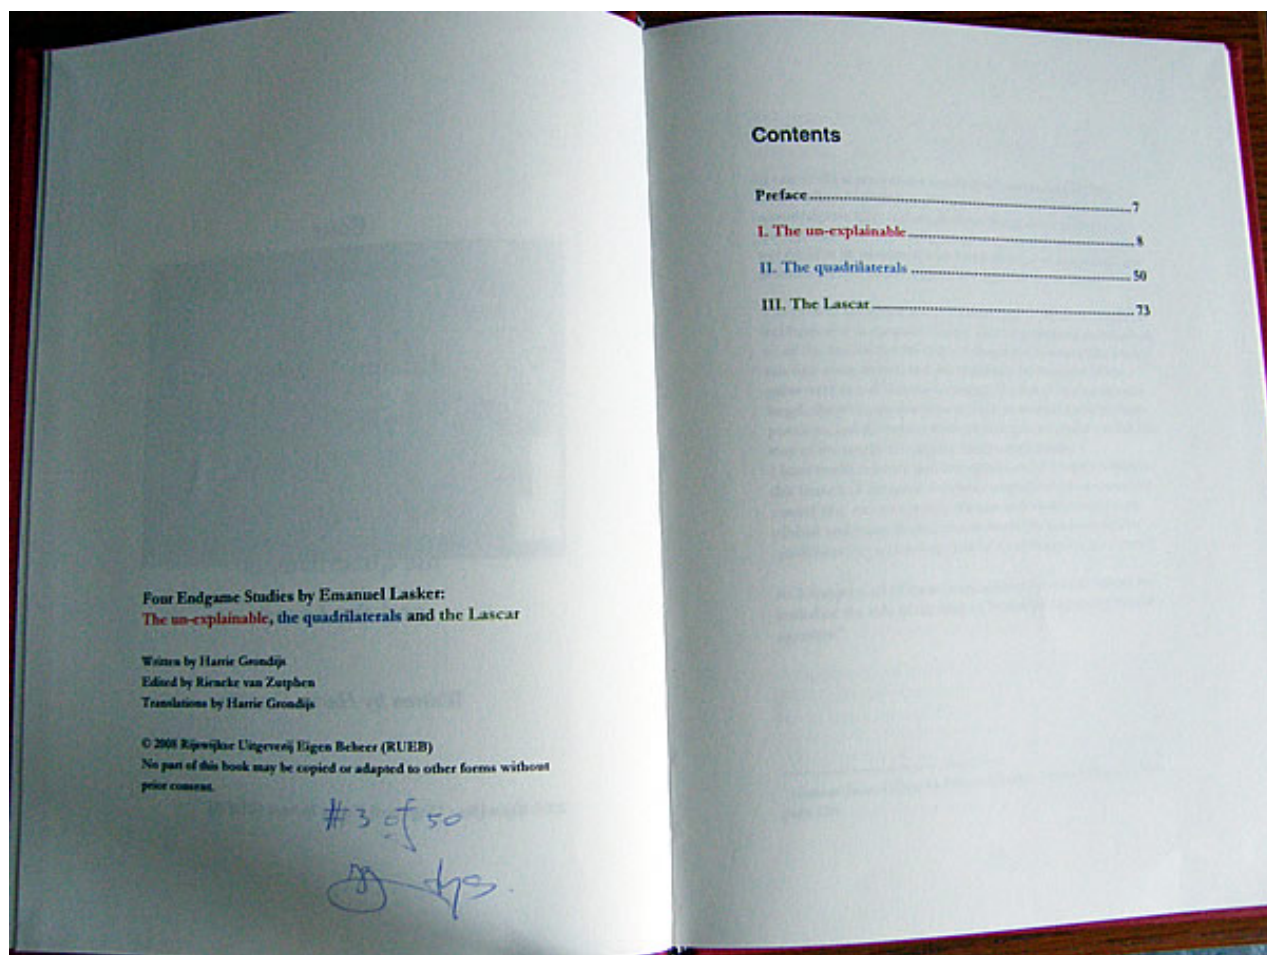 Four Endgame Studies by Emanuel Lasker:
The un-explainable, the quadrilaterals and the Lascar
Written by Harrie Grondijs
Edited by Rieneke van Zutphen
Translations by Harrie Grondijs
© 2008 Rijswijkse Uitgeverij Eigen Beheer (RUEB)
No part of this book may be copied or adapted to other forms without
prior consent.
#3 of 50
Contents
Preface 7
I. The un-explainable 8
II. The quadrilaterals 50
III. The Lascar 73